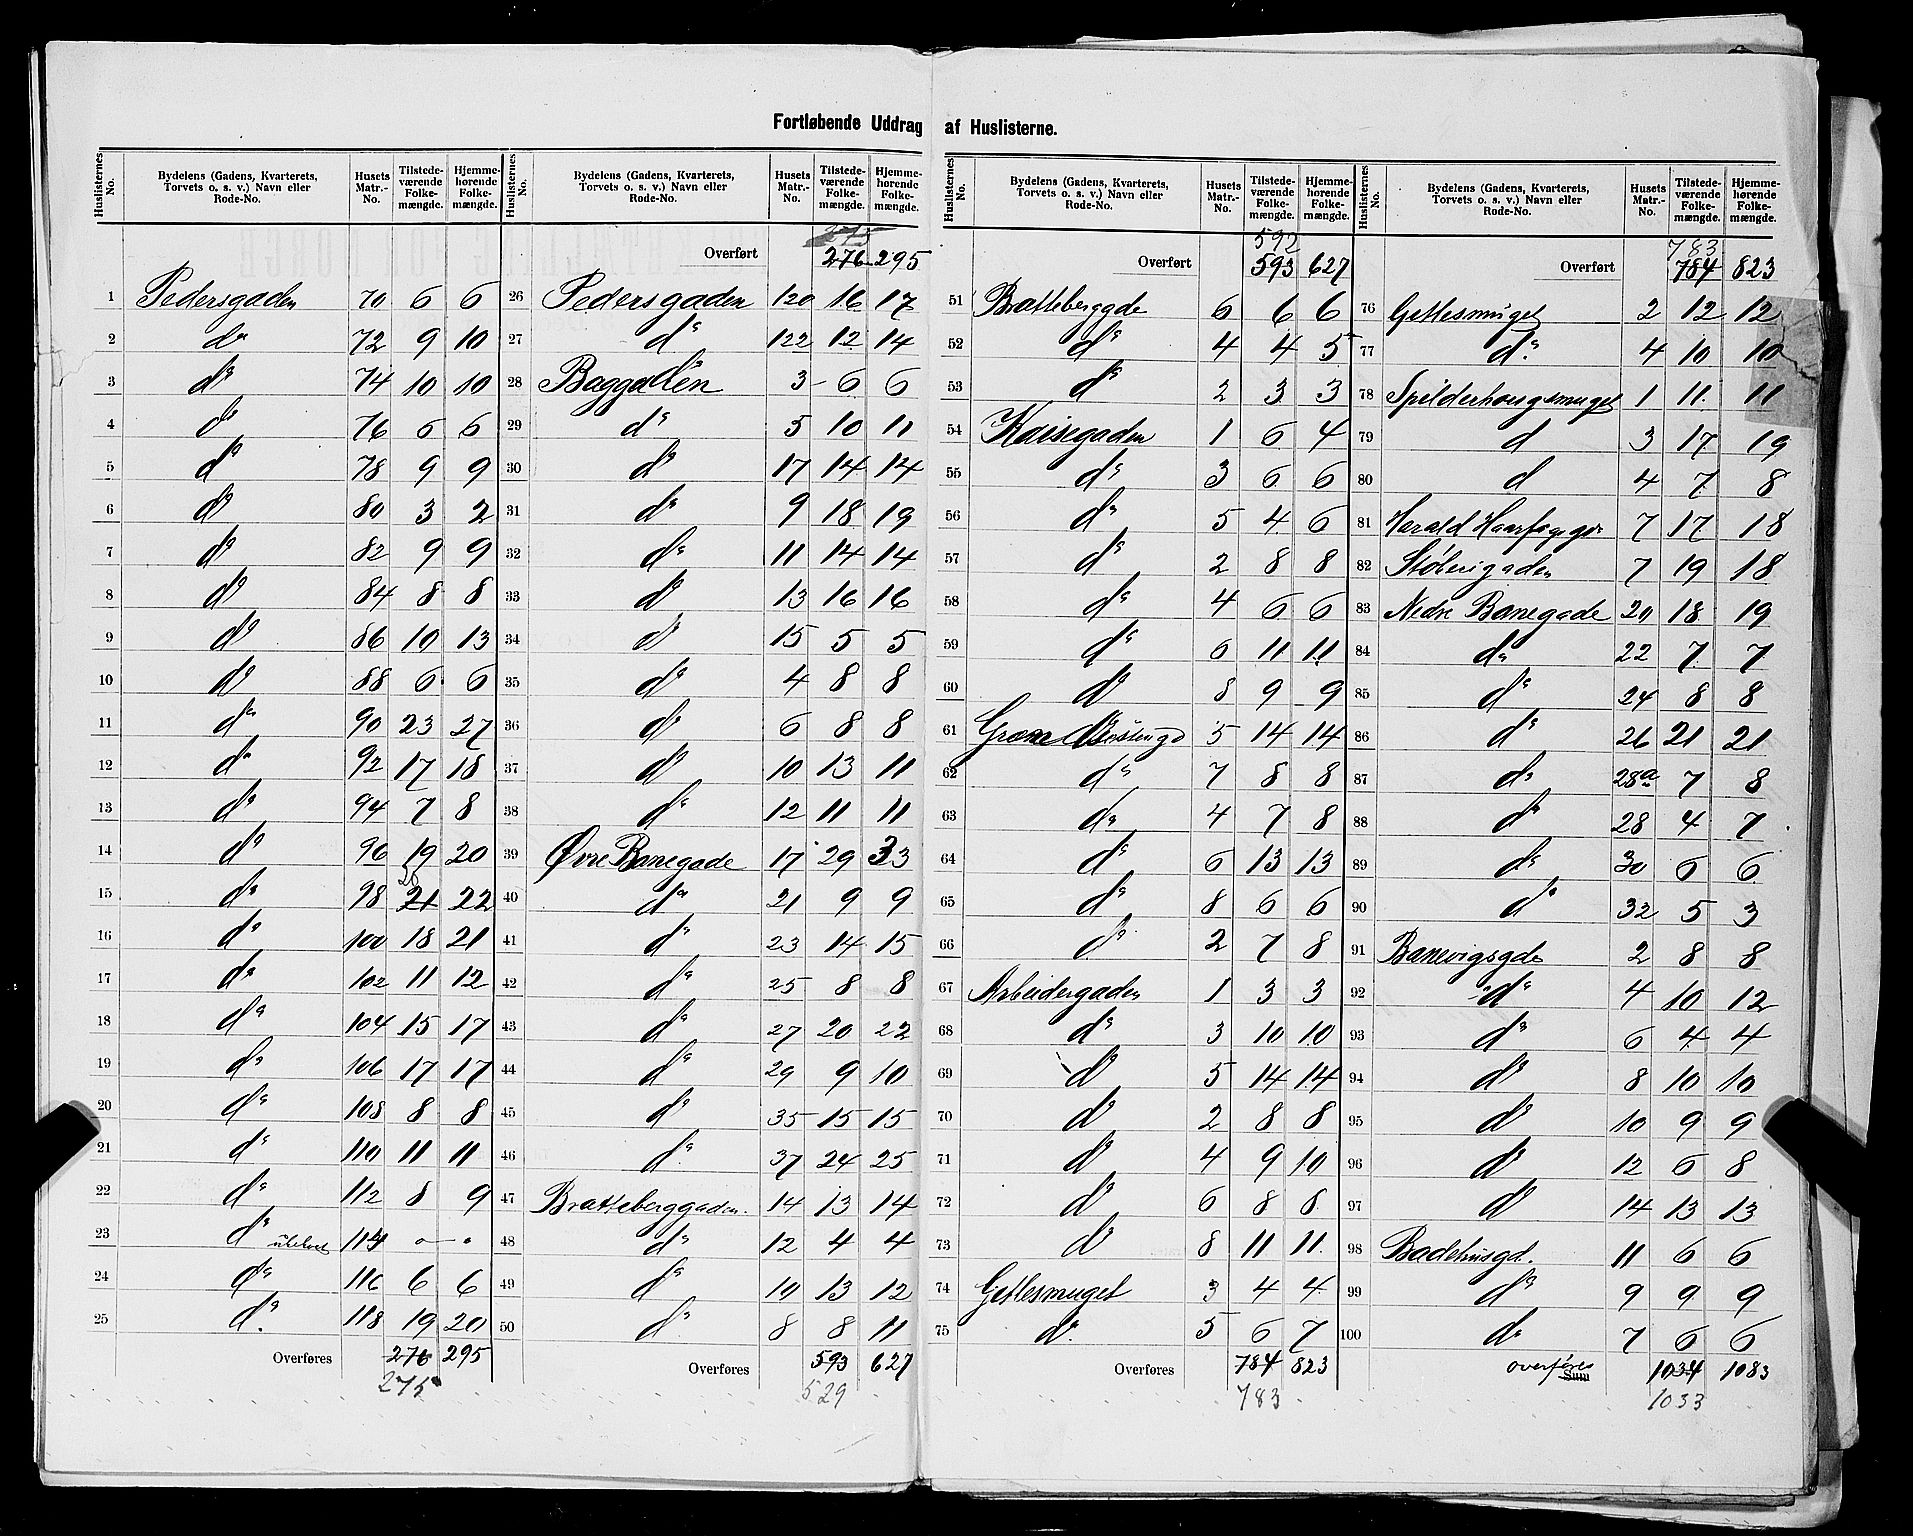 Fortløbende Uddrag af Huslisterne.
Huslisternes No. | Bydelens (Gadens, Kvarterets, Torvets o. s. v.) Navn eller Rode-No. | Husets Matr.-No. | Tilstede-værende Folke-mængde. | Hjemme-hørende Folke-mængde.
1 Pedersgaden 70 6 6
2 do 72 9 10
3 do 74 10 10
4 do 76 6 6
5 do 78 9 9
6 do 80 3 2
7 do 82 9 9
8 do 84 8 8
9 do 86 10 13
10 do 88 6 6
11 do 90 23 27
12 do 92 17 18
13 do 94 7 8
14 do 96 19 20
15 do 98 21 20 22
16 do 100 18 21
17 do 102 11 12
18 do 104 15 17
19 do 106 17 17
20 do 108 8 8
21 do 110 11 11
22 do 112 8 9
23 do ubeboet 114 - -
24 do 116 6 6
25 do 118 19 20
Overføres 276 295
275
Huslisternes No. | Bydelens (Gadens, Kvarterets, Torvets o. s. v.) Navn eller Rode-No. | Husets Matr.-No. | Tilstede-værende Folke-mængde. | Hjemme-hørende Folke-mængde.
275
Overført 276 295
26 Pedersgaden 120 16 17
27 do 122 12 14
28 Baggaden 3 6 6
29 do 5 10 11
30 do 17 14 14
31 do 9 18 19
32 do 11 14 14
33 do 13 16 16
34 do 15 5 5
35 do 4 8 8
36 do 6 8 8
37 do 10 13 11
38 do 12 11 11
39 Øvre Banegade 17 29 33
40 do 21 9 9
41 do 23 14 15
42 do 25 8 8
43 do 27 20 22
44 do 29 9 10
45 do 35 15 15
46 do 37 24 25
47 Bratteberggaden. 14 13 14
48 do 12 4 4
49 do 10 13 12
50 do 8 8 11
Overføres 593 627
529
Huslisternes No. | Bydelens (Gadens, Kvarterets, Torvets o. s. v.) Navn eller Rode-No. | Husets Matr.-No. | Tilstede-værende Folke-mængde. | Hjemme-hørende Folke-mængde.
592
Overført 593 627
51 Bratteberggde 6 6 6
52 do 4 4 5
53 do 2 3 3
54 Kaisegaden 1 6 4
55 do 3 6 6
56 do 5 4 6
57 do 2 8 8
58 do 4 6 6
59 do 6 11 11
60 do 8 9 9
61 5 14 14
62 do 7 8 8
63 do 4 7 8
64 do 6 13 13
65 do 8 6 6
66 do 2 7 8
67 Arbeidergaden 1 3 3
68 do 3 10 10
69 do 5 14 14
70 do 2 8 8
71 do 4 9 10
72 do 6 8 8
73 do 8 11 11
74 Getlesmuget 3 4 4
75 do 5 6 7
Overføres 784 823
783
Huslisternes No. | Bydelens (Gadens, Kvarterets, Torvets o. s. v.) Navn eller Rode-No. | Husets Matr.-No. | Tilstede-værende Folke-mængde. | Hjemme-hørende Folke-mængde.
783
Overført 784 823
76 Getlesmuget 2 12 12
77 do 4 10 10
78 Spilderhougsmuget 1 11 11
79 d 3 17 19
80 d 4 7 8
81 Harald Haarfagegd 7 17 18
82 Støberigaden 7 19 18
83 Nedre Banegade 20 18 19
84 do 22 7 7
85 do 24 8 8
86 do 26 21 21
87 do 28a 7 8
88 do 28 4 7
89 do 30 6 6
90 do 32 5 3
91 Banevigsgde 2 8 8
92 do 4 10 12
93 do 6 4 4
94 do 8 10 10
95 do 10 9 9
96 do 12 6 8
97 do 14 13 13
98 Badehusgd. 11 6 6
99 do 9 9 9
100 do 7 6 6
overføres Sum 1034 1083
1033